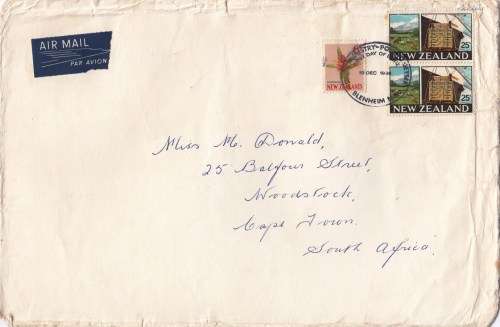 AIR MAIL
PAR AVION
NEW ZEALAND
25c
NEW ZEALAND
25c
NEW ZEALAND
BLENHEIM
Miss M. Donald,
25 Balfour Street,
Woodstock,
Cape Town.
South Africa.